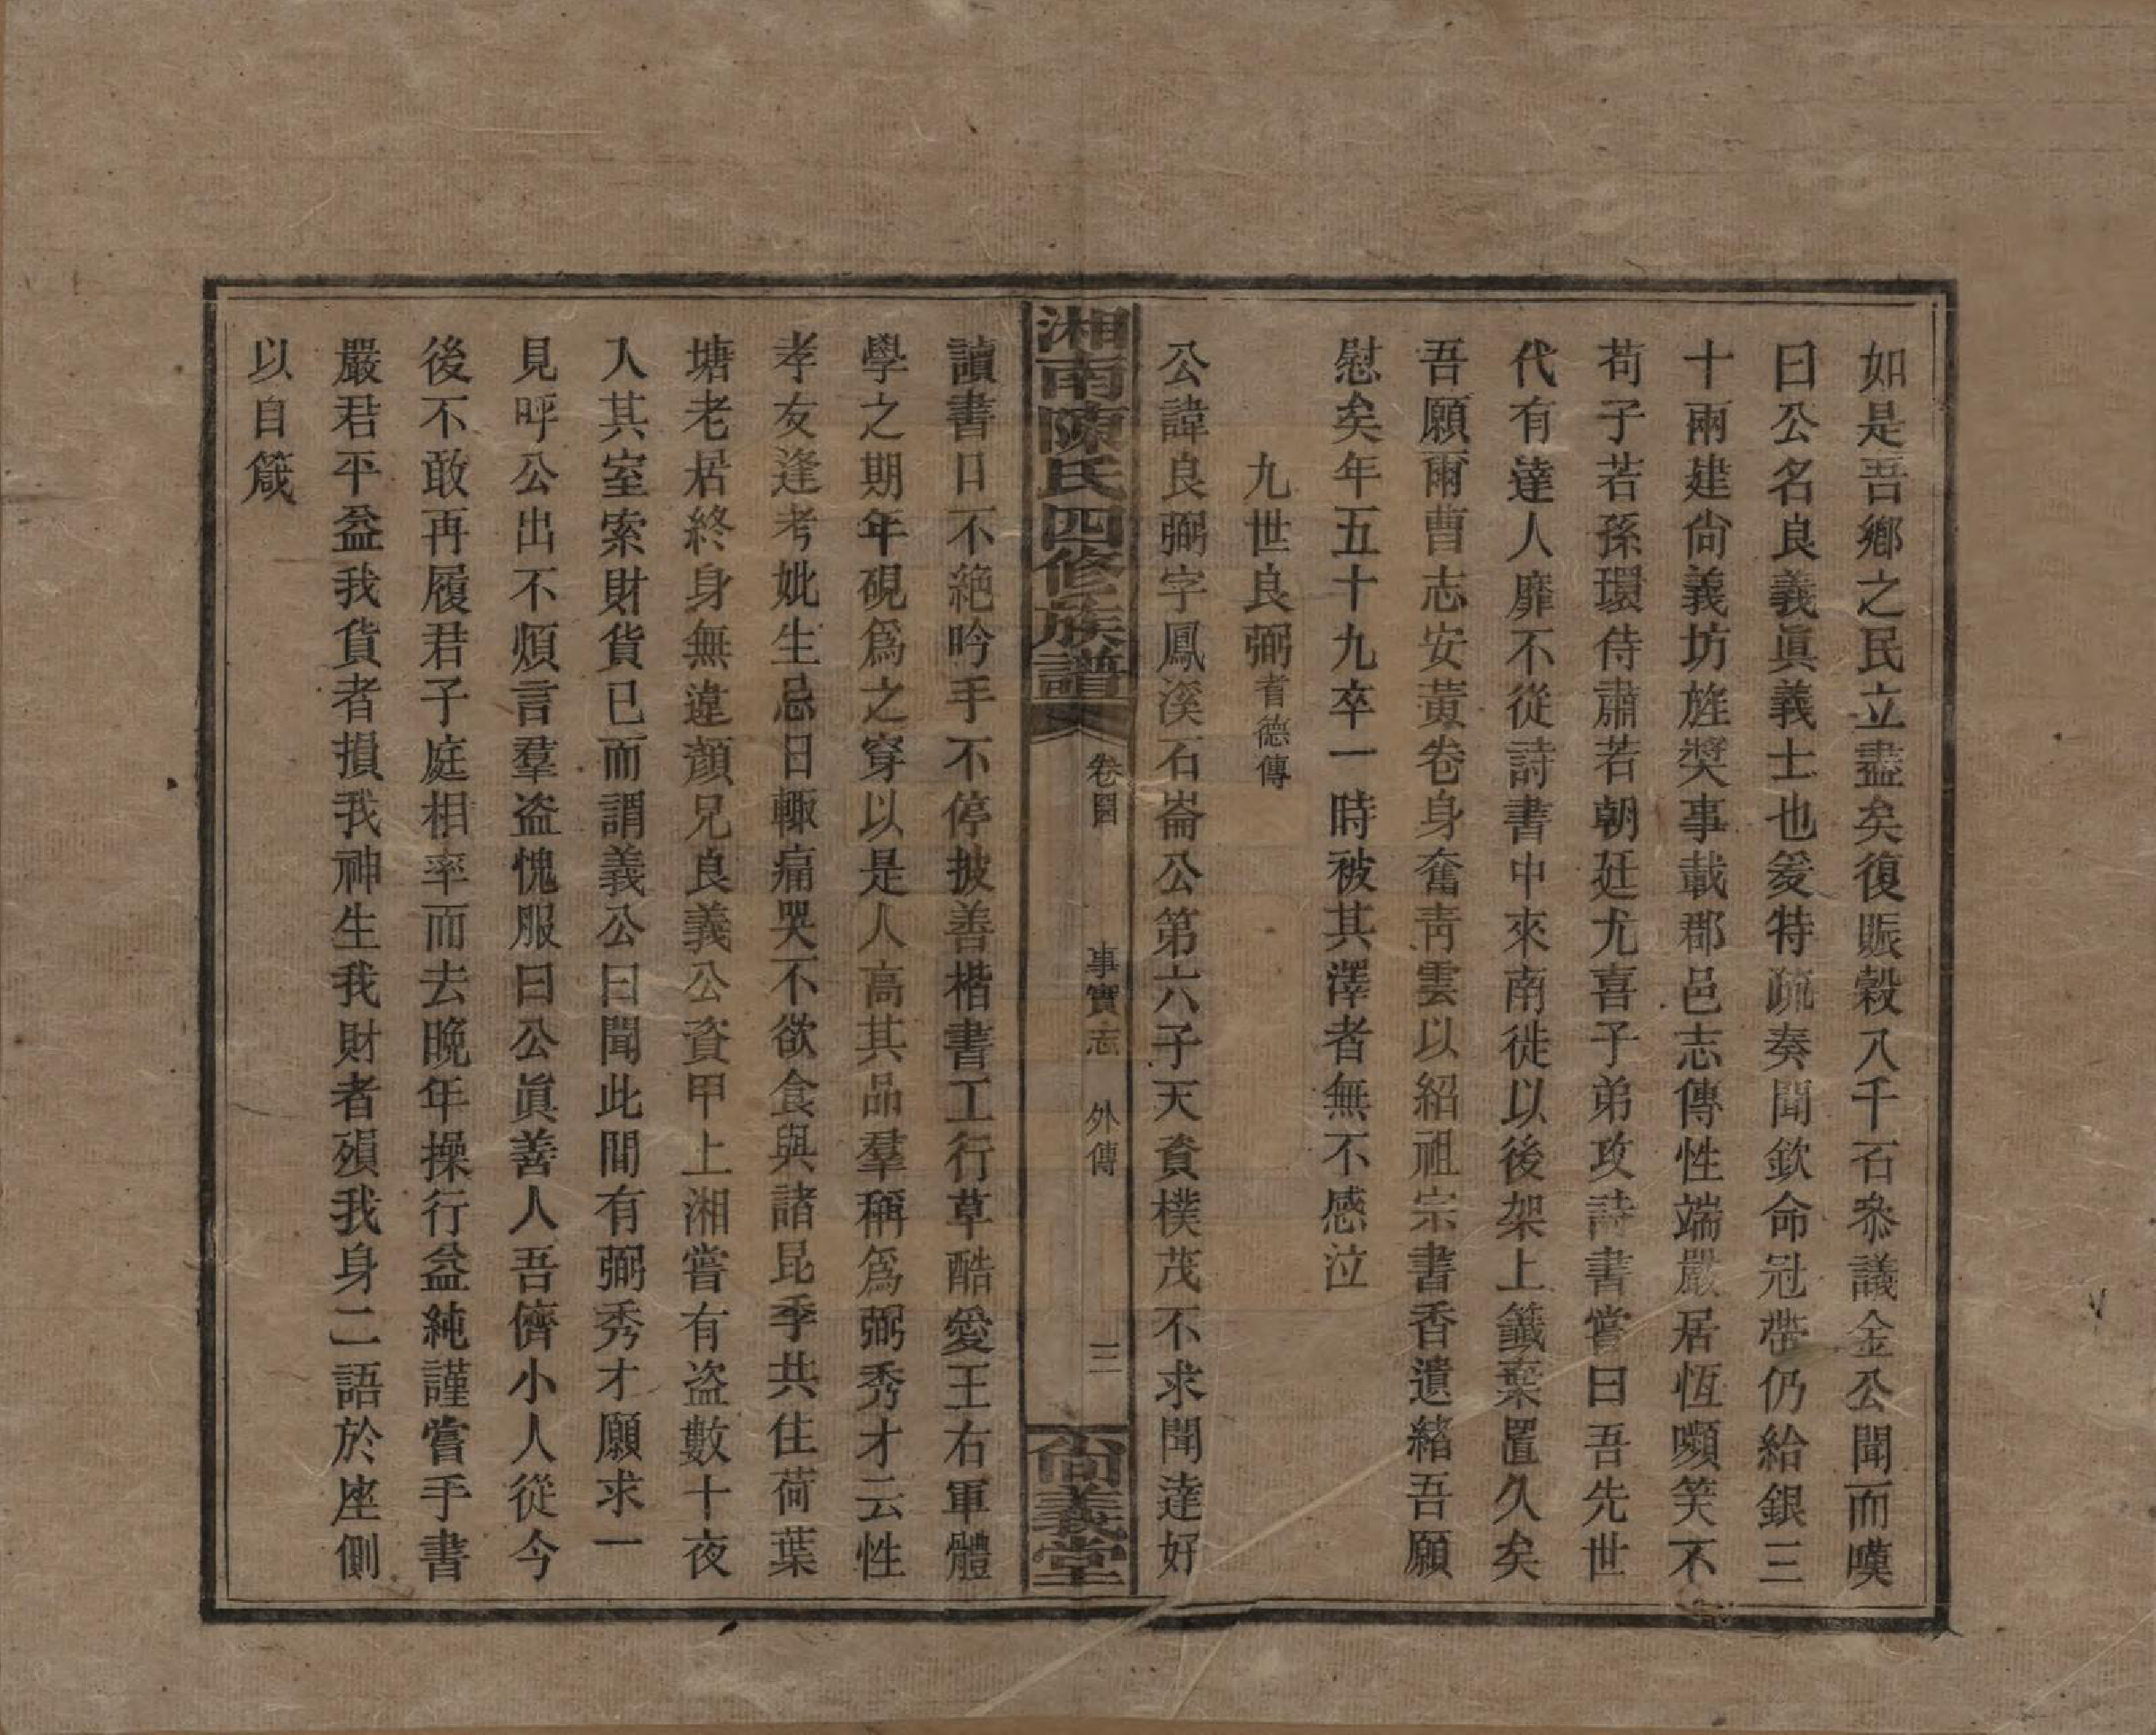 如是吾鄉之民立盡矣復賑穀八千石叅議金公聞而嘆
曰公名良義眞義士也爰特疏奏聞欽命冠帶仍給銀三
十兩建尙義坊旌奬事載郡邑志傳性端嚴居恆嚬笑不
苟子若孫環侍肅若朝廷尤喜子弟攻詩書嘗曰吾先世
代有達人靡不從詩書中來南徙以後架上籤棄置久矣
吾願爾曹志安黃卷身奮靑雲以紹祖宗書香遺緖吾願
慰矣年五十九卒一時被其澤者無不感泣
九世良弼耆德傳
公諱良弼字鳳溪石崙公第六子天資樸茂不求聞達好
湘南陳氏四修族譜 卷四 事實志 外傳 三 尙義堂
讀書口不絕吟手不停披善楷書工行草酷愛王右軍體
學之期年硯爲之穿以是人高其品羣稱爲弼秀才云性
孝友逢考妣生忌日輙痛哭不欲食與諸昆季共住荷葉
塘老居終身無違顏兄良義公資甲上湘嘗有盜數十夜
入其室索財貨已而謂義公曰聞此間有弼秀才願求一
見呼公出不煩言羣盜愧服曰公眞善人吾儕小人從今
後不敢再履君子庭相率而去晚年操行益純謹嘗手書
嚴君平益我貨者損我神生我財者殞我身二語於座側
以自箴